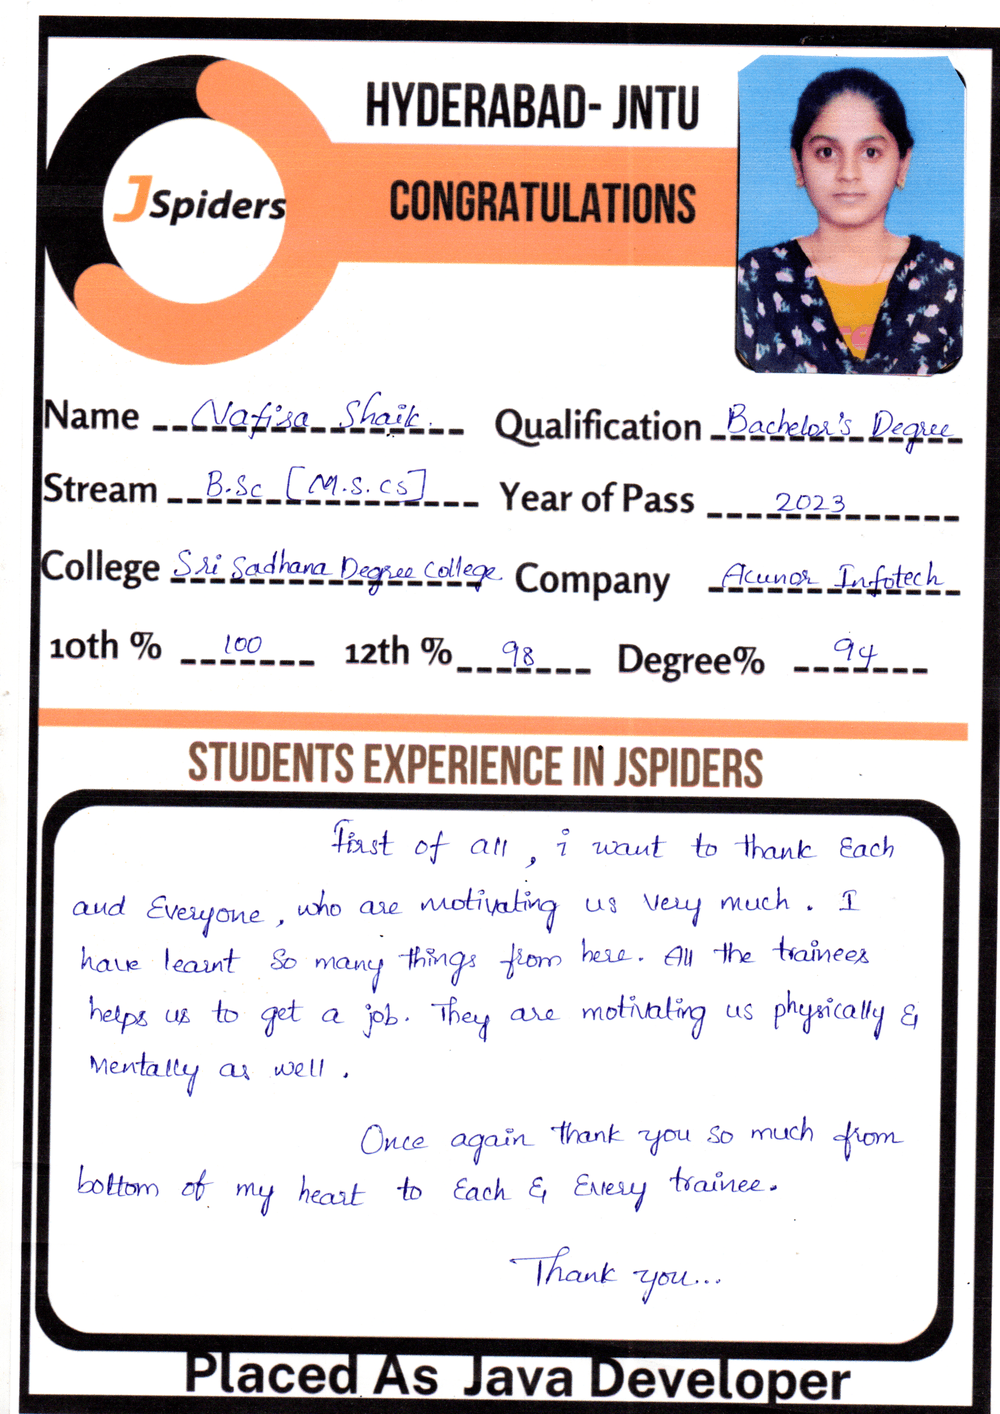 HYDERABAD- JNTU
JSpiders
CONGRATULATIONS
Name Nafisa Shaik. Qualification Bachelor's Degree
Stream B.Sc [M.S.CS] Year of Pass 2023
College Sri Sadhana Degree College Company Acunor Infotech
10th % 100 12th % 98 Degree% 94
STUDENTS EXPERIENCE IN JSPIDERS
First of all, i want to thank Each
and Everyone, who are motivating us very much. I
have learnt so many things from here. All the trainees
helps us to get a job. They are motivating us physically &
Mentally as well.
Once again thank you so much from
bottom of my heart to Each & Every trainee.
Thank you...
Placed As Java Developer